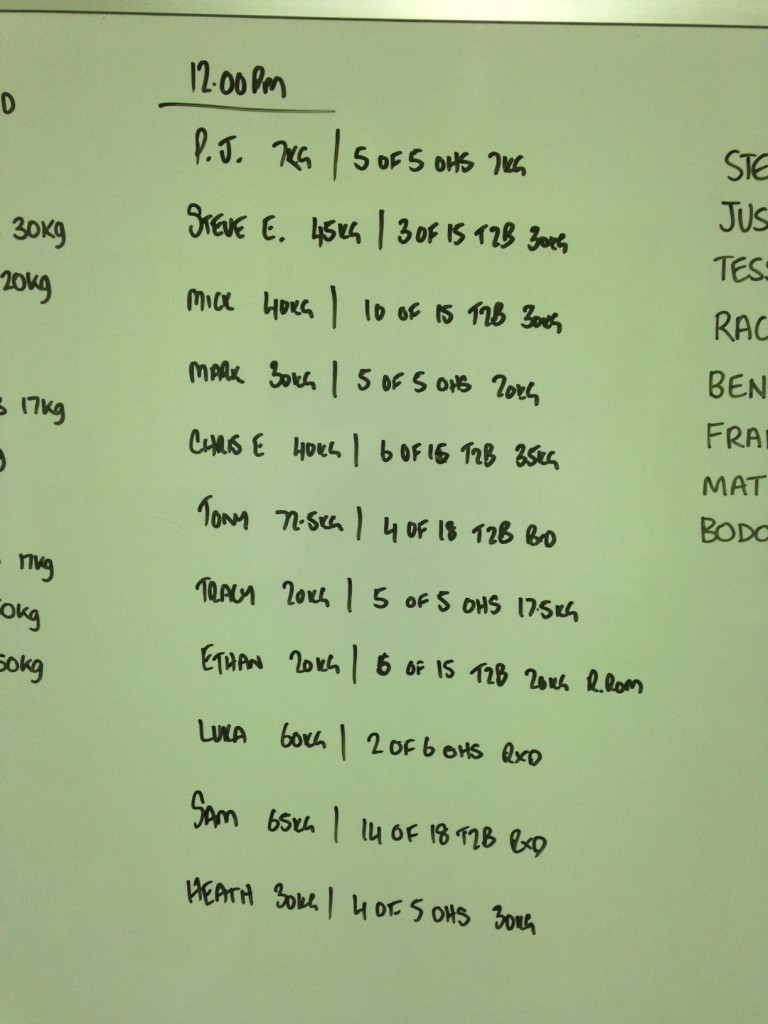 12.00PM
P.J. 7KG | 5 OF 5 OHS 7KG
STEVE E. 45KG | 3 OF 15 T2B 30KG
MICK 40KG | 10 OF 15 T2B 30KG
MARK 30KG | 5 OF 5 OHS 20KG
CHRIS E 40KG | 6 OF 15 T2B 35KG
TONY 72.5KG | 4 OF 18 T2B RXD
TRACY 20KG | 5 OF 5 OHS 17.5KG
ETHAN 20KG | 6 OF 15 T2B 20KG R.ROM
LUKA 60KG | 2 OF 6 OHS RXD
SAM 65KG | 14 OF 18 T2B RXD
HEATH 30KG | 4 OF 5 OHS 30KG
D
30Kg
20Kg
17Kg
17Kg
0Kg
50Kg
STE
JUS
TESS
RAC
BEN
FRA
MAT
BODO